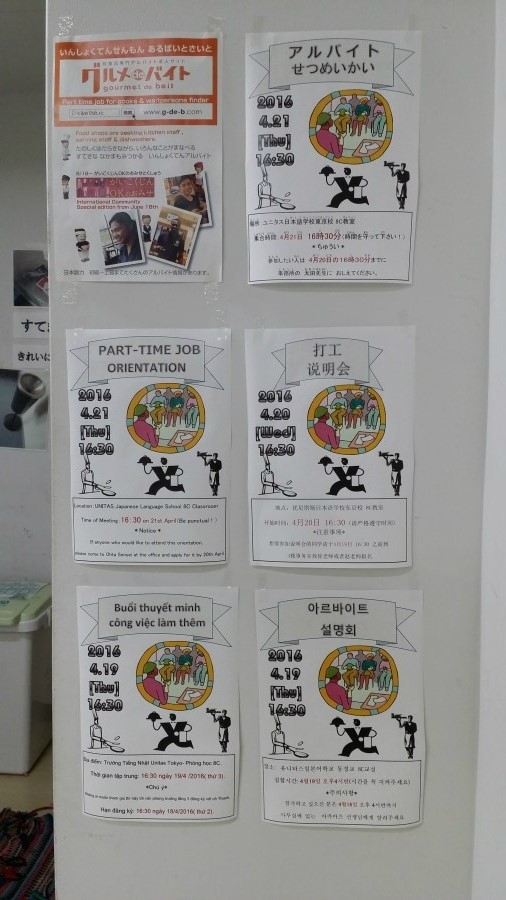 いんしょくてんせんもん あるばいとさいと
グルメdeバイト
gourmet de beit
Part time job for cooks & waitpersons finder
www.g-de-b.com
Food shops are seeking kitchen staff,
serving staff & dishwashers.
たのしくはたらきながら、いろんなことがまなべる
すてきな なかまもみつかる いんしょくてんアルバイト
がいこくじん
OKのおみせ
International Community
Special edition from June 18th
アルバイト
せつめいかい
2016
4.21
[Thu]
16:30
場所:ユニタス日本語学校東京校 8C教室
集合時間:4月21日 16時30分(時間を守って下さい!)
*ちゅうい*
参加したい人は 4月20日の16時30分までに
事務所の 太田先生に おしえてください。
PART-TIME JOB
ORIENTATION
2016
4.21
[Thu]
16:30
Location: UNITAS Japanese Language School 8C Classroom
Time of Meeting: 16:30 on 21st April (Be punctual!)
*Notice*
If anyone who would like to attend this orientation,
please come to Ohta Sensei at the office and apply for it by 20th April
打工
说明会
2016
4.20
[Wed]
16:30
地点:尤尼塔斯日本语学校东京校 8C教室
开始时间:4月20日 16:30 (请严格遵守时间)
*注意事项*
Buổi thuyết minh
công việc làm thêm
2016
4.19
[Thu]
16:30
Địa điểm: Trường Tiếng Nhật Unitas Tokyo- Phòng học 8C.
Thời gian tập trung: 16:30 ngày 19/4 /2016( thứ 3).
*Chú ý*
Hạn đăng ký: 16:30 ngày 18/4/2016( thứ 2).
아르바이트
설명회
2016
4.19
[Thu]
16:30
장소: 유니타스일본어학교 동경교 8C교실
집합시간: 4월19일 오후4시반(시간을 꼭 지켜주세요)
*주의사항*
すてま
きれいに